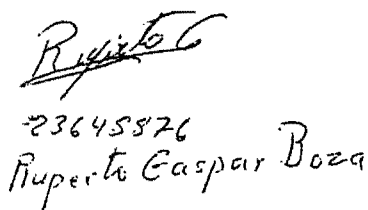 Ruperto G
23645576
Ruperto Gaspar Boza